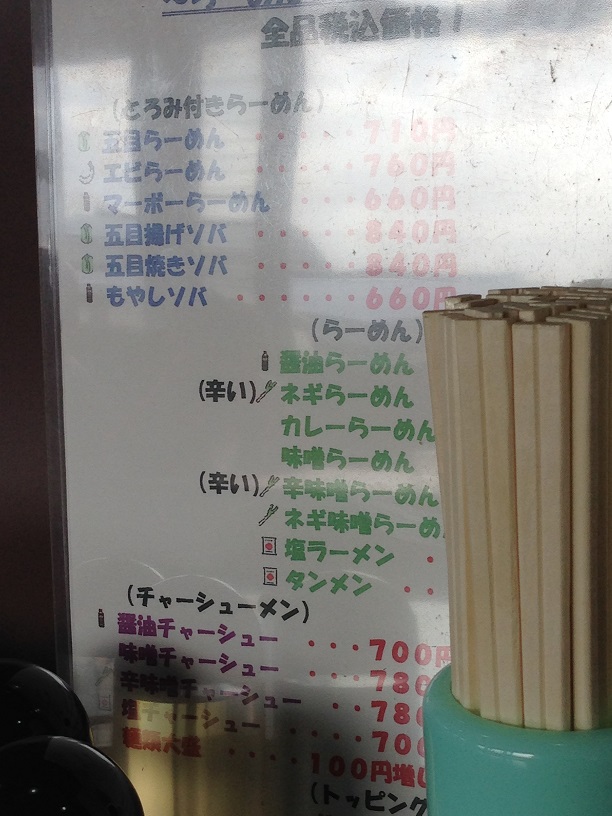 全品税込価格!
(とろみ付きらーめん)
五目らーめん ・・・・・710円
エビらーめん ・・・・・760円
マーボーらーめん ・・・660円
五目揚げソバ ・・・・・840円
五目焼きソバ ・・・・・840円
もやしソバ ・・・・・・660円
(らーめん)
醤油らーめん
(辛い)ネギらーめん
カレーらーめん
味噌らーめん
(辛い)辛味噌らーめん
ネギ味噌らーめ
塩ラーメン ・
タンメン ・・
(チャーシューメン)
醤油チャーシュー ・・・700円
味噌チャーシュー ・・・780
辛味噌チャーシュー ・・780
塩チャーシュー ・・・・700
麺類大盛 ・・・・100円増し
(トッピング